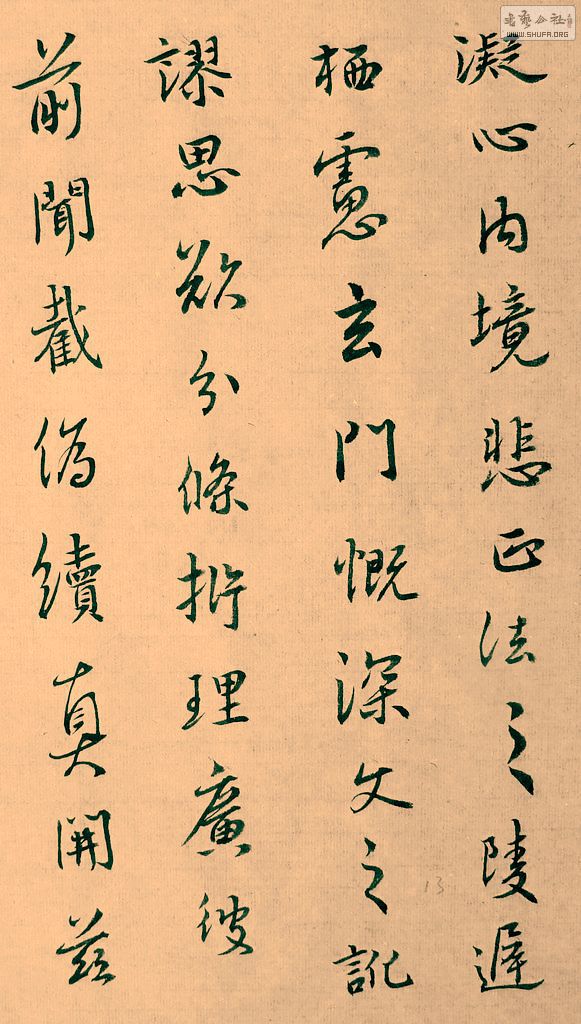 凝心内境悲正法之陵遲
栖慮玄門慨深文之訛
謬思欲分條析理廣彼
前聞截偽續真開茲
书艺公社
WWW.SHUFA.ORG
13